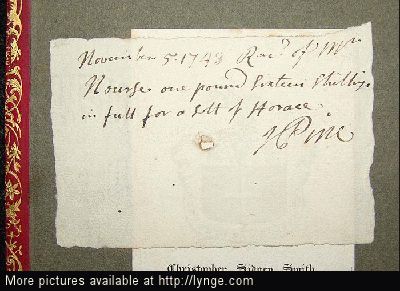 November 5. 1748 Rec.d of Mr.
Nourse one pound Sixteen Shillings
in full for a Sett of Horace.
J Pine
Christopher Sidney Smith
More pictures available at http://lynge.com